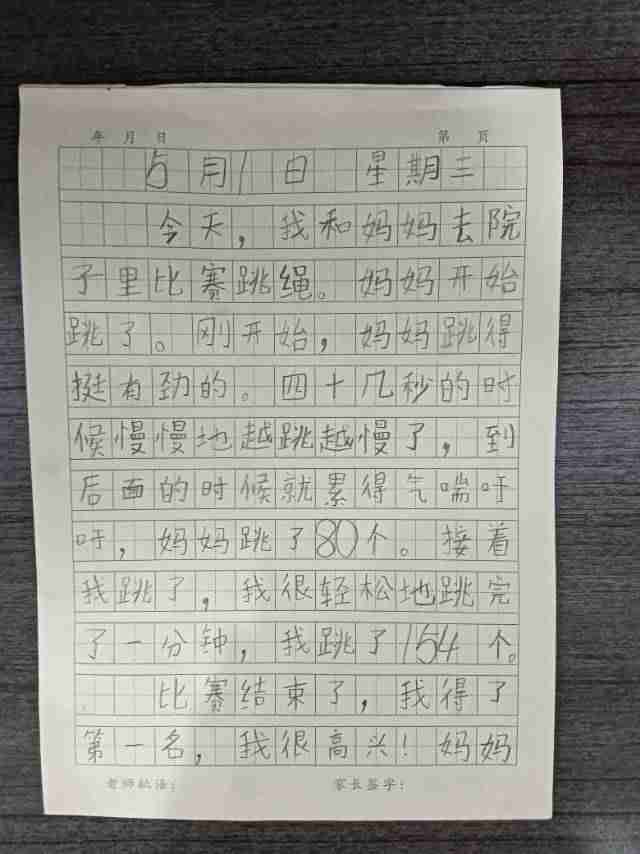 年 月 日 第 页
5月1日 星期三
今天,我和妈妈去院
子里比赛跳绳。妈妈开始
跳了。刚开始,妈妈跳得
挺有劲的。四十几秒的时
候慢慢地越跳越慢了,到
后面的时候就累得气喘吁
吁,妈妈跳了80个。接着
我跳了,我很轻松地跳完
了一分钟,我跳了154个。
比赛结束了,我得了
第一名,我很高兴!妈妈
老师批语: 家长签字: